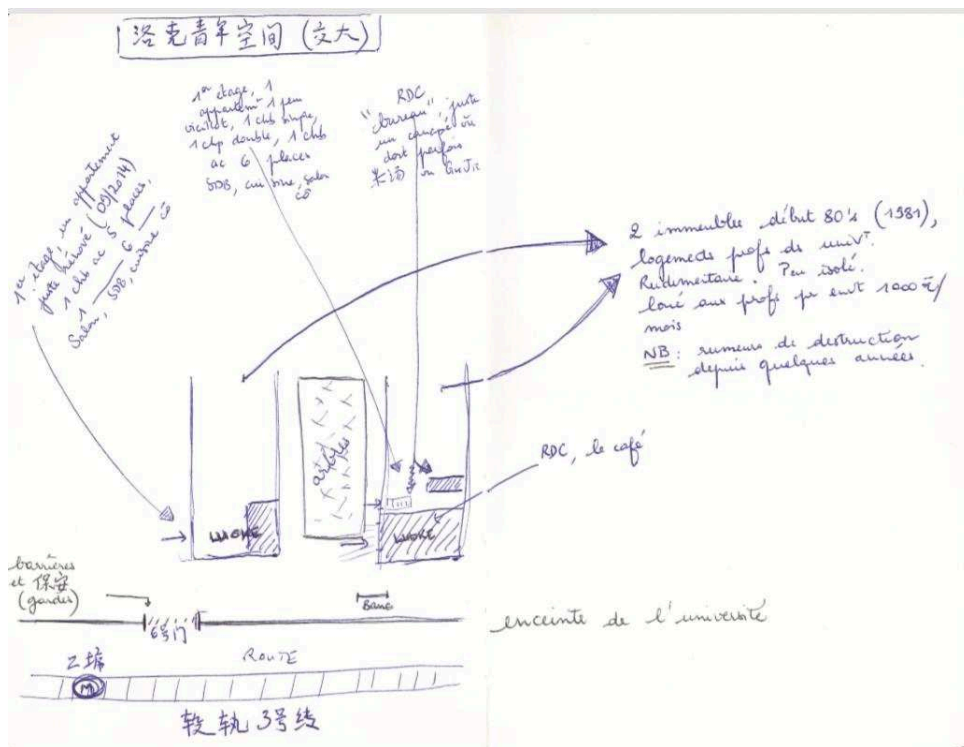 洛克青年空间 (交大)
1er étage, un appartement
juste rénové (09/2014)
1 chb ac 5 places,
1 — 6 —
Salon, SDB, cuisine
1er étage, 1
appartemt 1 peu
vieillot, 1 chb simple,
1 chb double, 1 chb
ac 6 places
SDB, cuisine, salon
RDC
"bureau", juste
un canapé où
dort parfois
米汤 ou
2 immeubles début 80's (1981),
logements profs de univt.
Rudimentaire. Peu isolé.
loué aux profs pr envt 1000 /
mois
NB : rumeurs de destruction
depuis quelques années.
RDC, le café
barrières
et 保安
(gardes)
Banc
6号门
enceinte de l'université
ROUTE
M
3号线